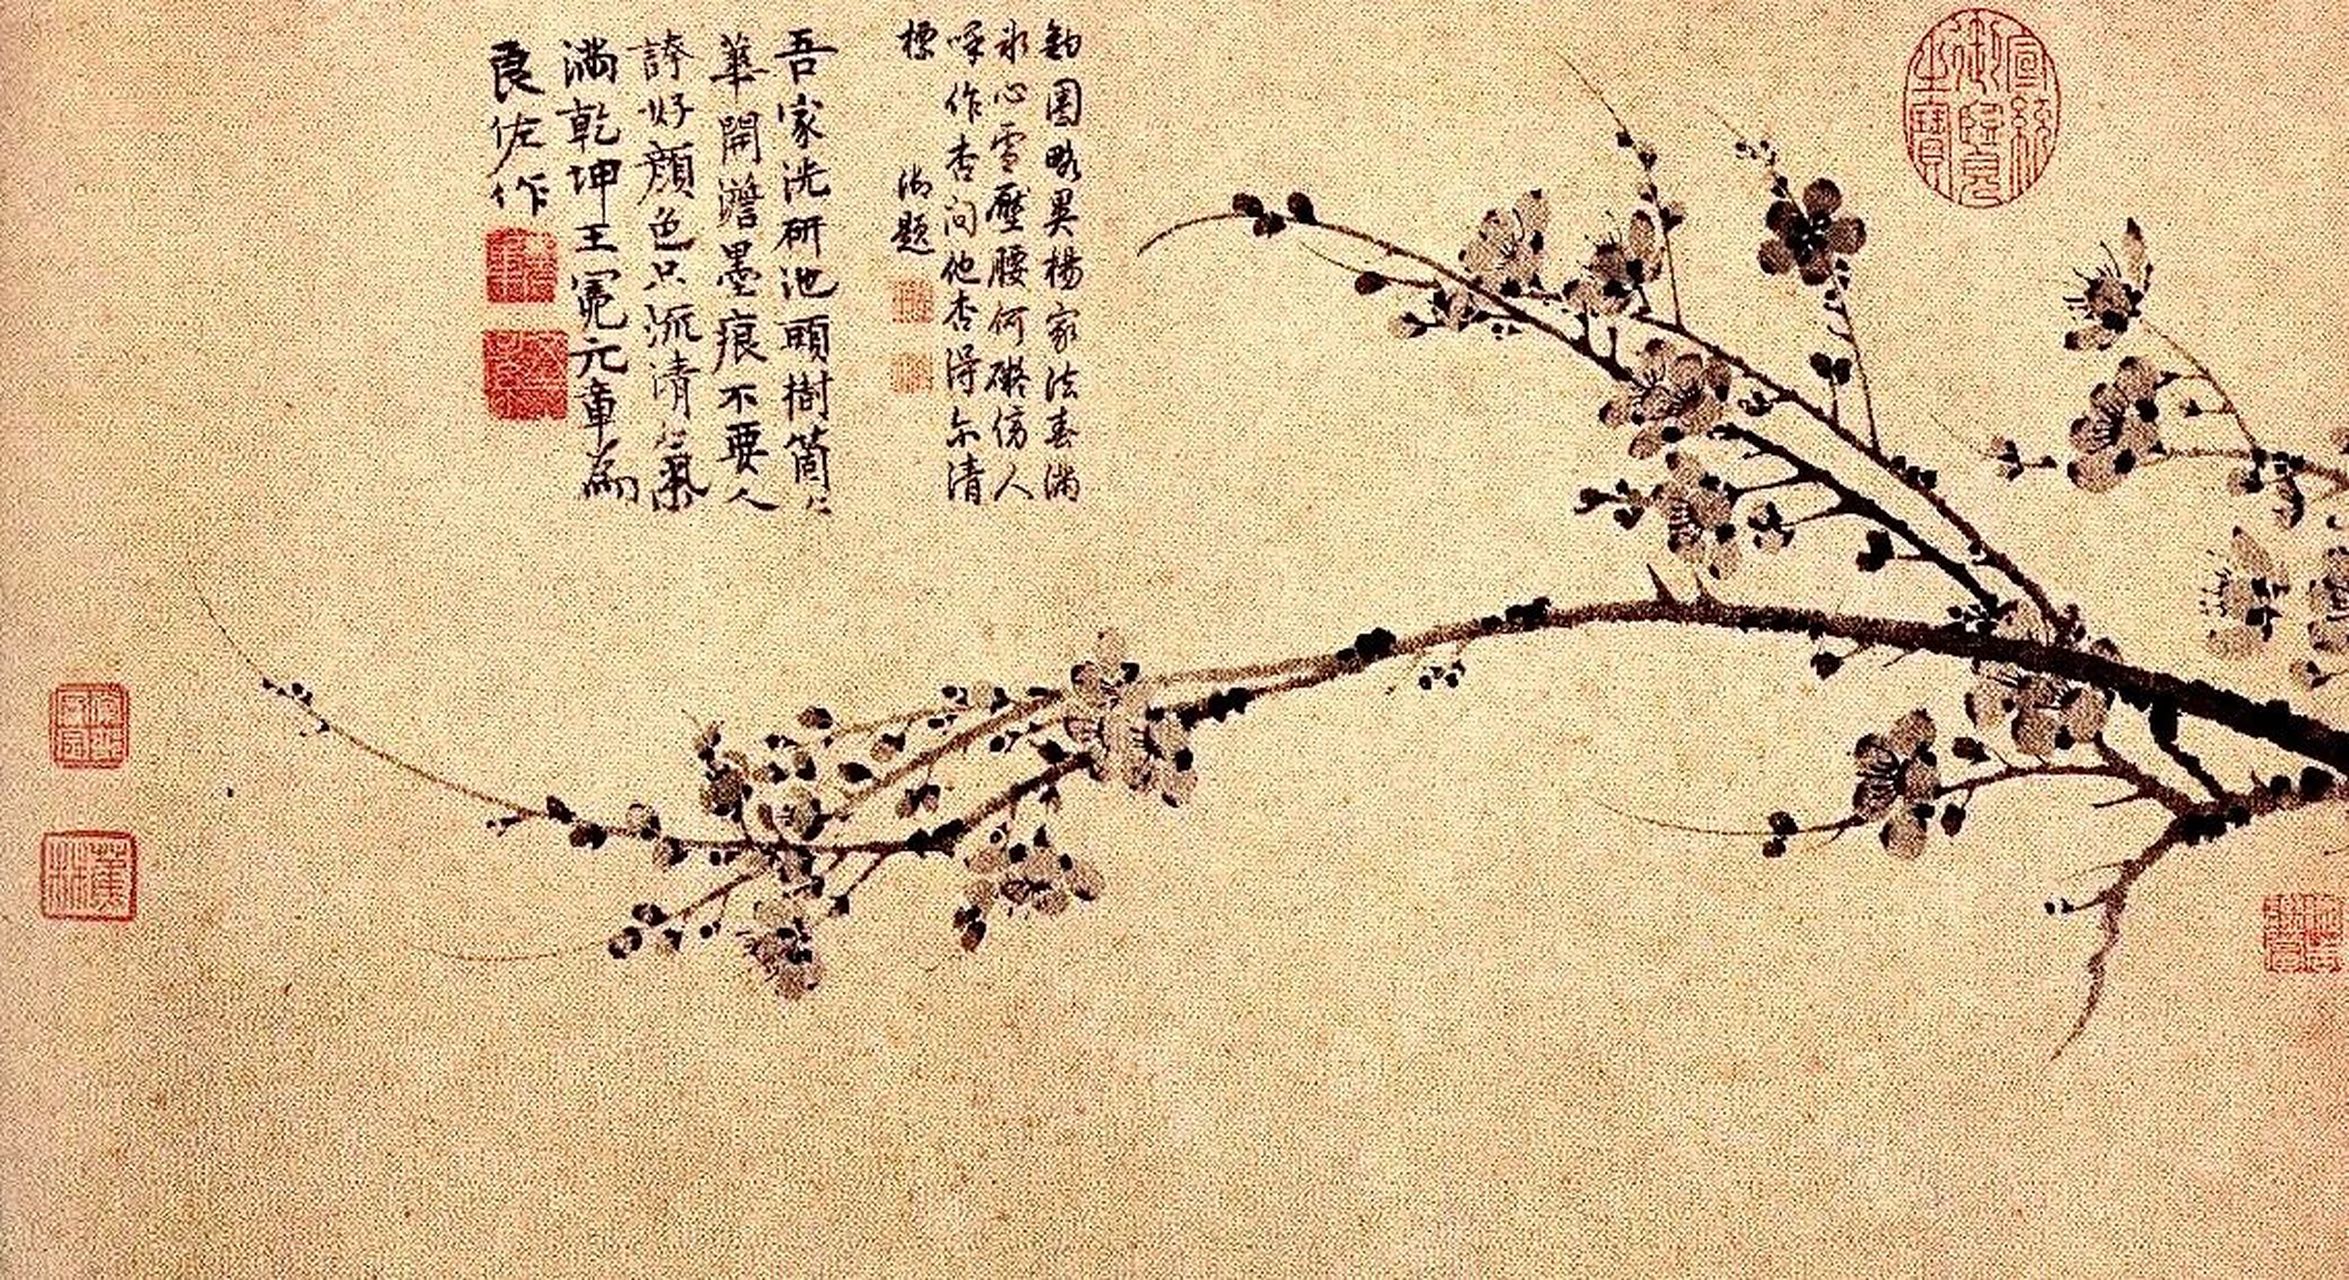 鈎圈略異楊家法春滿
冰心雪壓腰何礙傍人
呼作杏問他杏得尓清
標 御題
吾家洗研池頭樹箇〻
華開澹墨痕不要人
誇好顏色只流清氣
滿乾坤王冕元章為
良佐作
宣統御覽之寶